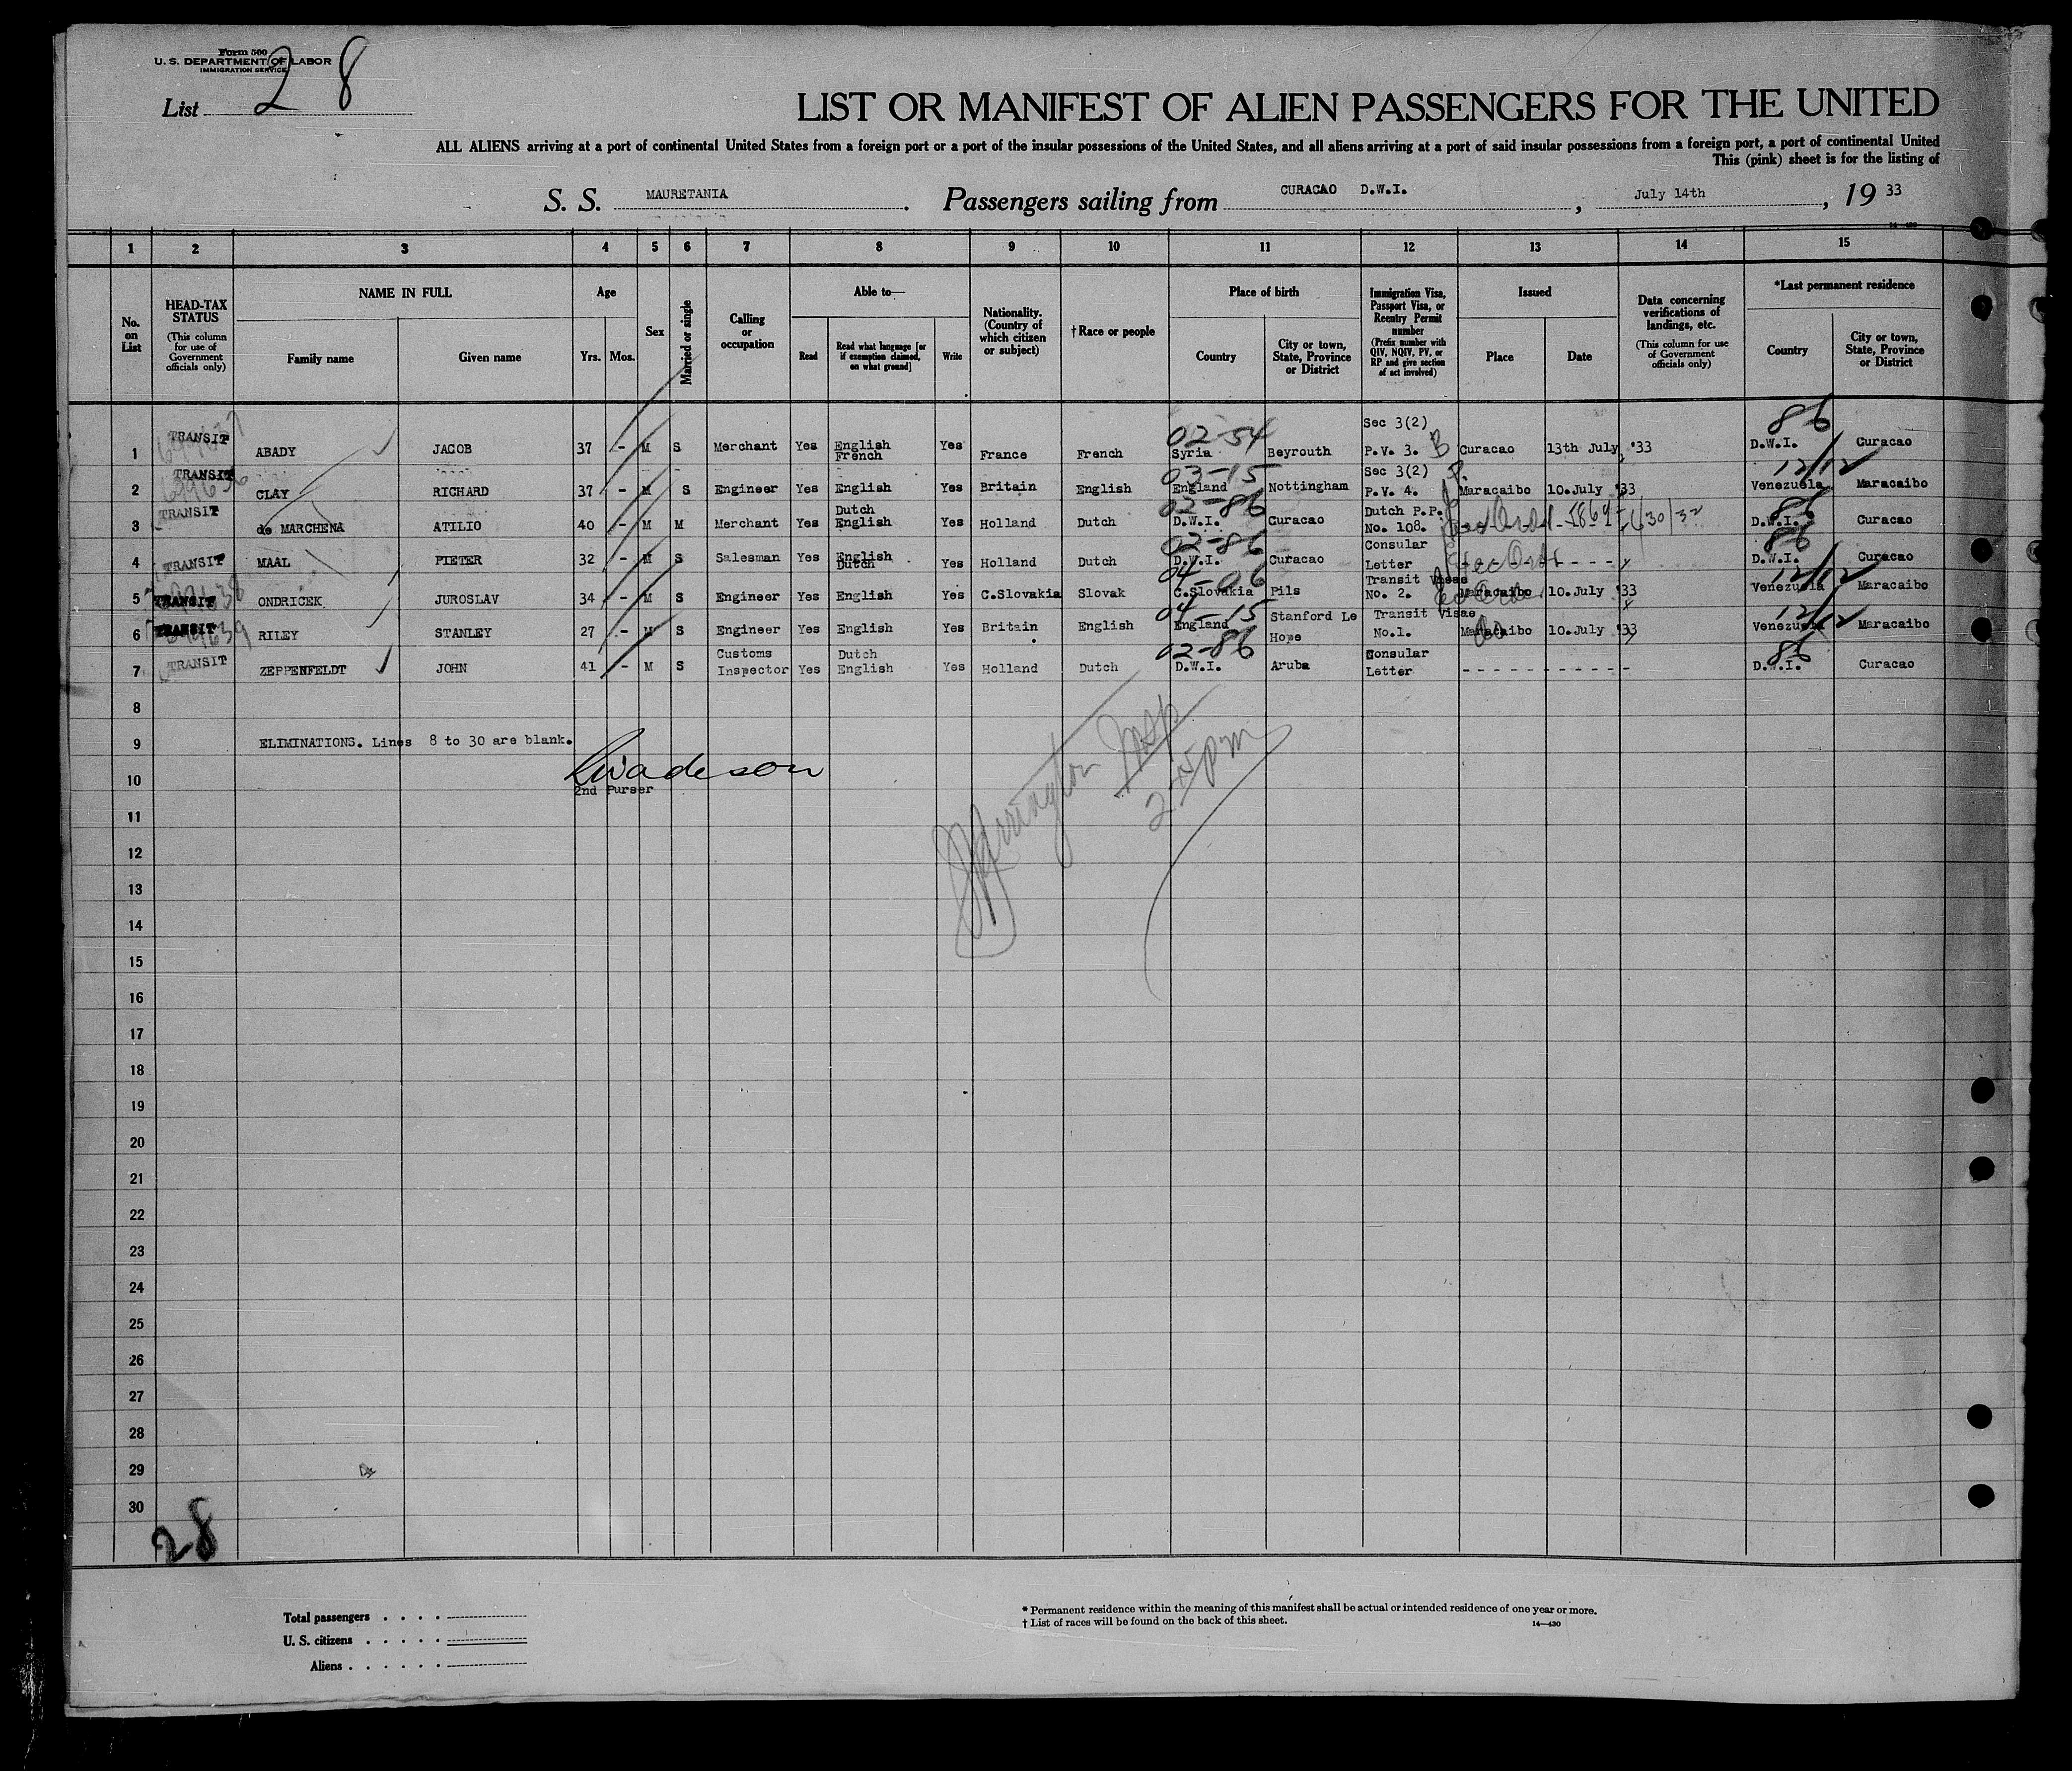 Form 500
U. S. DEPARTMENT OF LABOR
IMMIGRATION SERVICE
List 28
LIST OR MANIFEST OF ALIEN PASSENGERS FOR THE UNITED
ALL ALIENS arriving at a port of continental United States from a foreign port or a port of the insular possessions of the United States, and all aliens arriving at a port of said insular possessions from a foreign port, a port of continental United
This (pink) sheet is for the listing of
S. S. MAURETANIA. Passengers sailing from CURACAO D.W.I., July 14th, 19 33
1 2 3 4 5 6 7 8 9 10 11 12 13 14 15
No. on List
HEAD-TAX STATUS
(This column for use of Government officials only)
NAME IN FULL
Family name Given name
Age
Yrs. Mos.
Sex
Married or single
Calling or occupation
Able to—
Read
Read what language [or if exemption claimed, on what ground]
Write
Nationality. (Country of which citizen or subject)
†Race or people
Place of birth
Country
City or town, State, Province or District
Immigration Visa, Passport Visa, or Reentry Permit number
(Prefix number with QIV, NQIV, PV, or RP and give section of act involved)
Issued
Place Date
Data concerning verifications of landings, etc.
(This column for use of Government officials only)
*Last permanent residence
Country
City or town, State, Province or District
1 TRANSIT ABADY JACOB 37 - M S Merchant Yes English French Yes France French 02-54 Syria Beyrouth Sec 3(2) P.V. 3. Curacao 13th July '33 86 D.W.I. Curacao
2 TRANSIT CLAY RICHARD 37 - M S Engineer Yes English Yes Britain English 03-15 England Nottingham Sec 3(2) P.V. 4. Maracaibo 10.July '33 12/12 Venezuela Maracaibo
3 TRANSIT de MARCHENA ATILIO 40 - M M Merchant Yes Dutch English Yes Holland Dutch 02-86 D.W.I. Curacao Dutch P.P. No. 108. 86 D.W.I. Curacao
4 TRANSIT MAAL PIETER 32 - M S Salesman Yes English Dutch Yes Holland Dutch 02-86 D.W.I. Curacao Consular Letter 86 D.W.I. Curacao
5 TRANSIT ONDRICEK JUROSLAV 34 - M S Engineer Yes English Yes C.Slovakia Slovak 04-06 C.Slovakia Pils Transit Visae No. 2. Maracaibo 10.July '33 12/12 Venezuela Maracaibo
6 TRANSIT RILEY STANLEY 27 - M S Engineer Yes English Yes Britain English 04-15 England Stanford Le Hope Transit Visae No.1. Maracaibo 10.July '33 12/12 Venezuela Maracaibo
7 TRANSIT ZEPPENFELDT JOHN 41 - M S Customs Inspector Yes Dutch English Yes Holland Dutch 02-86 D.W.I. Aruba Consular Letter - - - - - - - - - - - 86 D.W.I. Curacao
8
9 ELIMINATIONS. Lines 8 to 30 are blank.
10
2nd Purser
11
12
13
14
15
16
17
18
19
20
21
22
23
24
25
26
27
28
29
30
28
Total passengers . . . .
U. S. citizens . . . . .
Aliens . . . . . .
* Permanent residence within the meaning of this manifest shall be actual or intended residence of one year or more.
† List of races will be found on the back of this sheet.
14—430